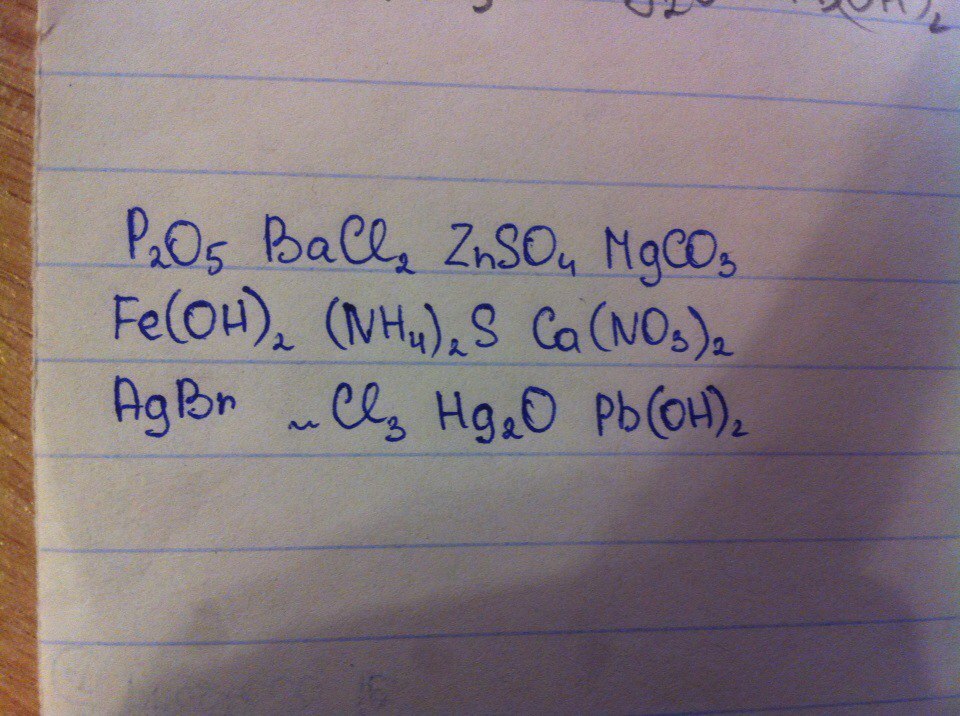 P₂O₅ BaCl₂ ZnSO₄ MgCO₃
Fe(OH)₂ (NH₄)₂S Ca(NO₃)₂
AgBr Cl₃ Hg₂O Pb(OH)₂